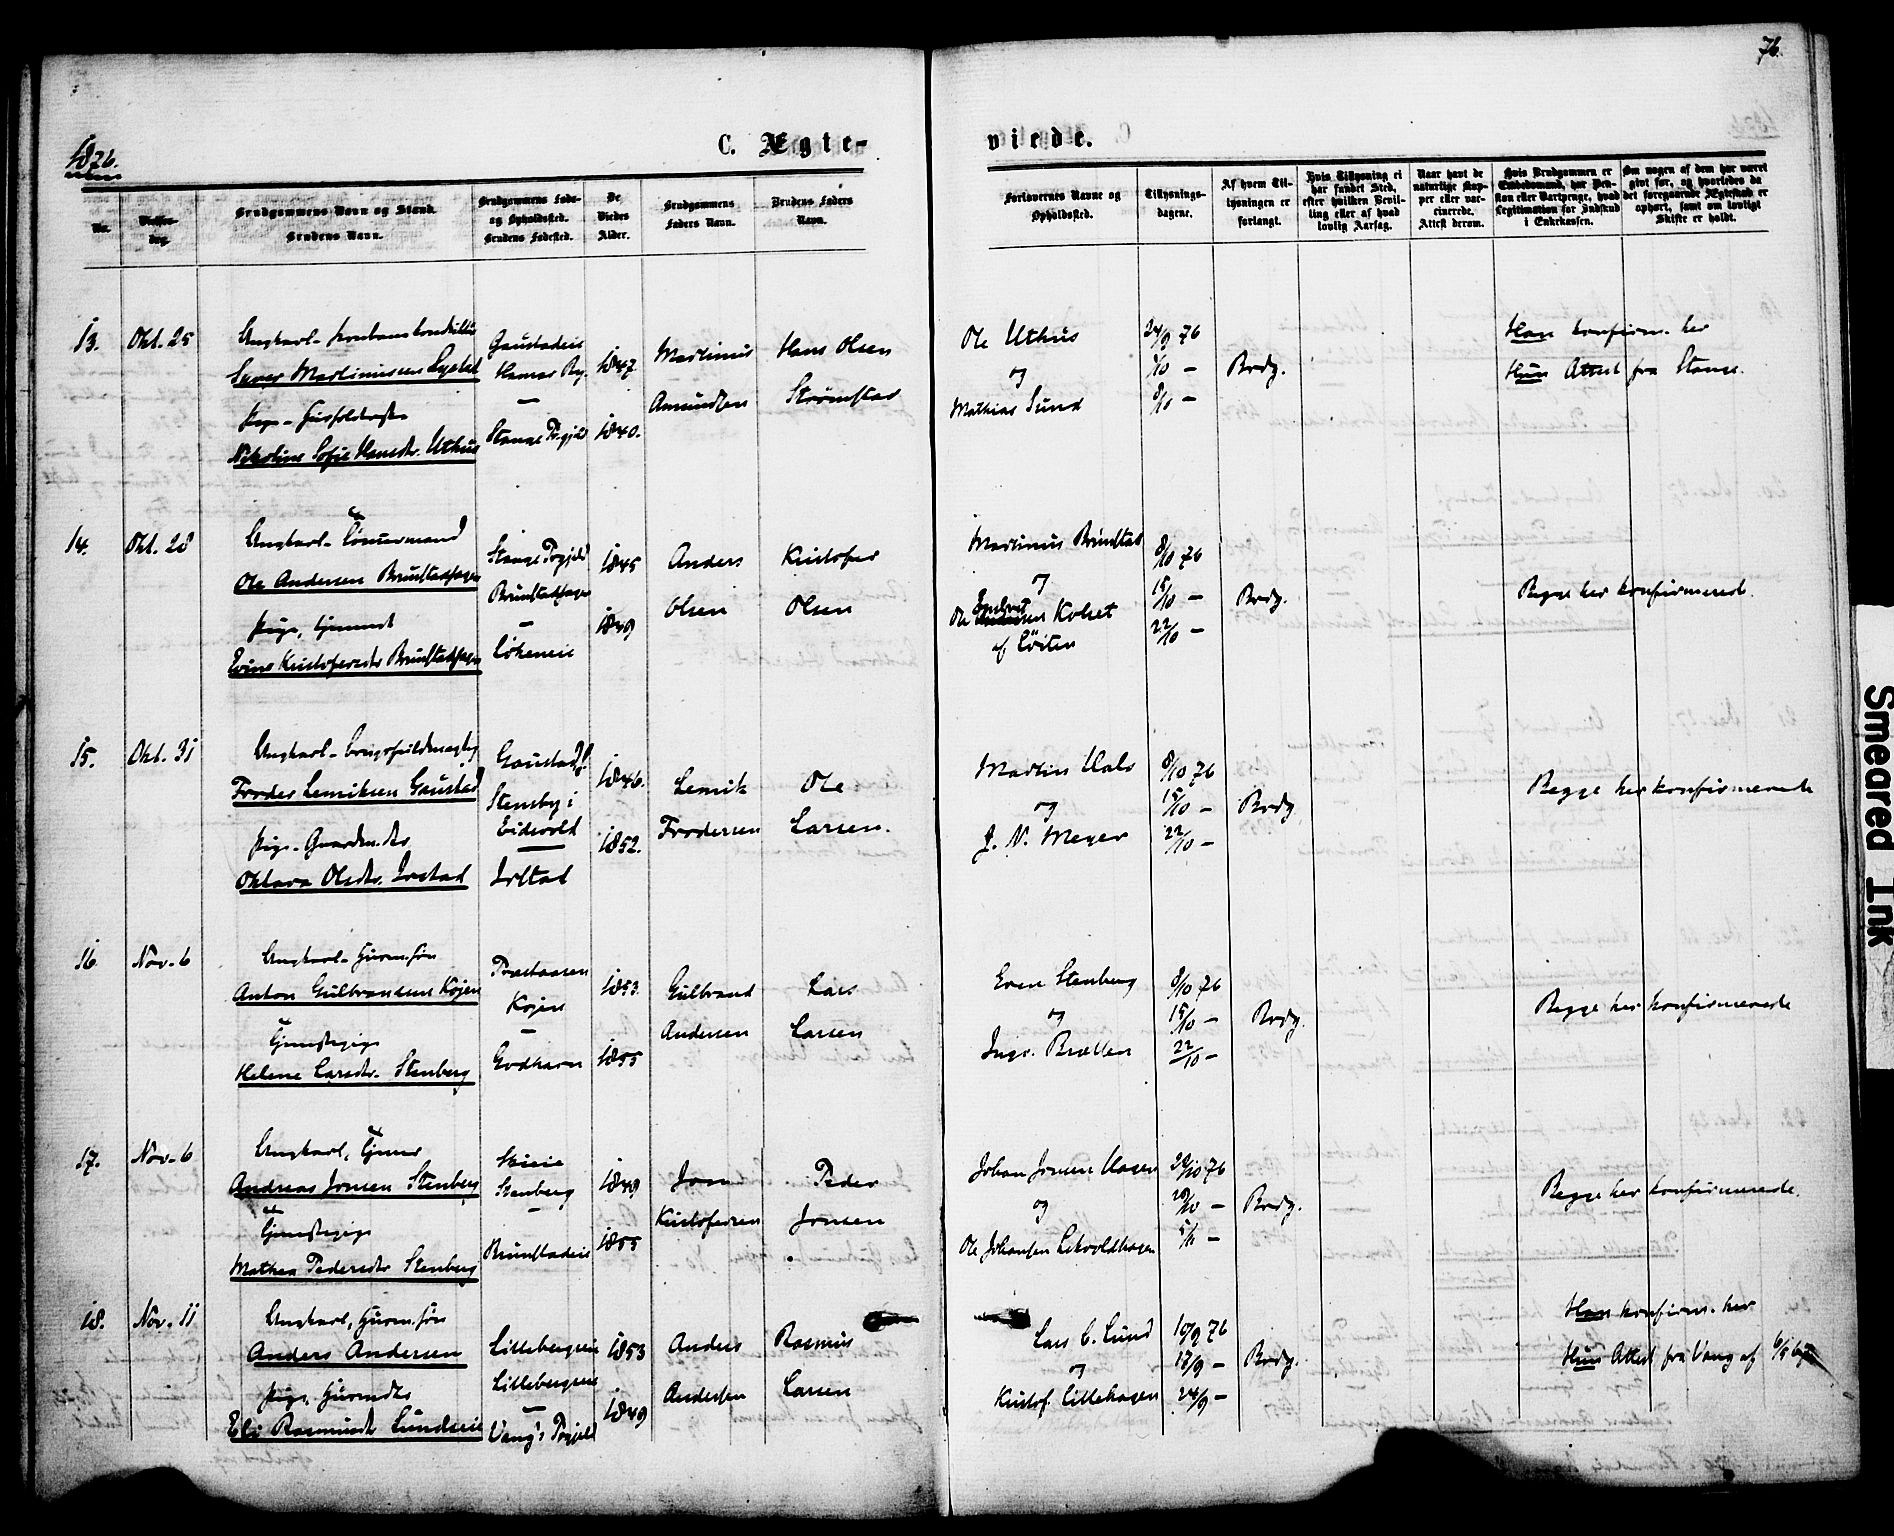 76.
1876.
C. Ægte-
viede.
Nr.
Vielses-
dag.
Brudgommens Navn og Stand.
Brudens Navn.
Brudgommens Føde-
og Opholdssted.
Brudens Fødested.
De
Viedes
Alder.
Brudgommens
Faders Navn.
Brudens Faders
Navn.
Forlovernes Navne og
Opholdssted.
Tillysnings-
dagene.
Af hvem Til-
lysningen er
forlangt.
Hvis Tillysning ei
har fundet Sted,
efter hvilken Bevil-
ling eller af hvad
lovlig Aarsag.
Naar havt de
naturlige Kop-
per eller vac-
cinerede.
Attest derom.
Hvis Brudgommen er
Embedsmand, har Pen-
sion eller Vartpenge, hvad
Legitimation for Indskud
i Enkekassen.
Om nogen af dem har været
gift før, og hvorledes da
det foregaaende Ægteskab er
ophørt, samt om lovligt
Skifte er holdt.
13.
Okt. 25
Ungkarl
Martinussen
Pige
Nikoline Sofie Hansdtr. Uthus
Gaustadeie
Hamar By.
—
Stange Prgjeld
1847
1840.
Martinus
Amundsen
Hans Olsen
Strømstad
Ole Uthus
og
Mathias Lund
24/9 76
1/10 —
8/10 —
Brdg.
Han konfirm. her
Hun Attest fra Stange.
14.
Okt. 28
Ungkarl
Ole Andersen Brunstadhagen
Pige, Gjenest
Kristofersdtr Brunstadhagen
Stange Prgjeld
Brunstadhagen
—
Løkeneie
1845
1849
Anders
Olsen
Kristofer
Olsen
Martinus Brunstad
og
Ole Kolset
af Løiten
8/10 76
15/10 —
22/10 —
Brdg.
Begge her konfirmerede.
15.
Okt. 31
Ungkarl
Froder Lemiksen Gaustad
Pige - Gaardm.dtr
Oktava Olsdtr. Irstad
Gaustad
Stensby i
Eidsvold
Irstad
1846.
1852.
Lemik
Frodersen
Ole
Larsen.
Martin Hals
og
J. N. Meyer
8/10 76
15/10 —
22/10 —
Brdg
Begge her konfirmerede
16
Nov. 6
Ungkarl - Husm. søn
Anton Gulbrandsen Kojen
Tjenestepige
Helene Larsdtr. Stenberg
Præstaasen
Kojen
—
Godthaon
1853.
1855
Gulbrand
Andersen
Lars
Larsen
Even Stenberg
og
Ingv. Bratten
8/10 76
15/10 —
22/10 —
Brdg.
Begge her konfirmerede
17.
Nov. 6
Ungkarl, Tjener
Andreas Jonsen Stenberg
Tjenestepige
Mathea Pedersdtr Stenberg
Stenberg
—
Brunstadeie
1849
1855
Jon
Kristofersen
Peder
Jonsen
Johan Jonsen Hagen
og
Ole Johansen
22/10 76
29/10 —
5/11 —
Brdg.
Begge her konfirmerede.
18.
Nov. 11
Ungkarl, Husm. søn
Anders Andersen
Pige, Husmdtr
Eli Rasmusdtr Lundseie
Lillebergseie
Lillebergseie
—
Vang's Prgjeld
1853
1849
Anders
Andersen
Rasmus
Larsen
Lars C. Lund
og
Kristof. Lillehagen
10/9 76
17/9 —
24/9 —
Brdg.
Han konfirm. her
Hun Attest fra Vang af
Smeared Ink